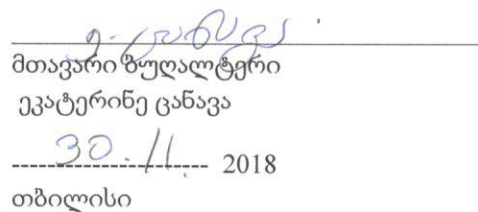 ე. ცანავა
მთავარი ბუღალტერი
ეკატერინე ცანავა
30.11. 2018
თბილისი